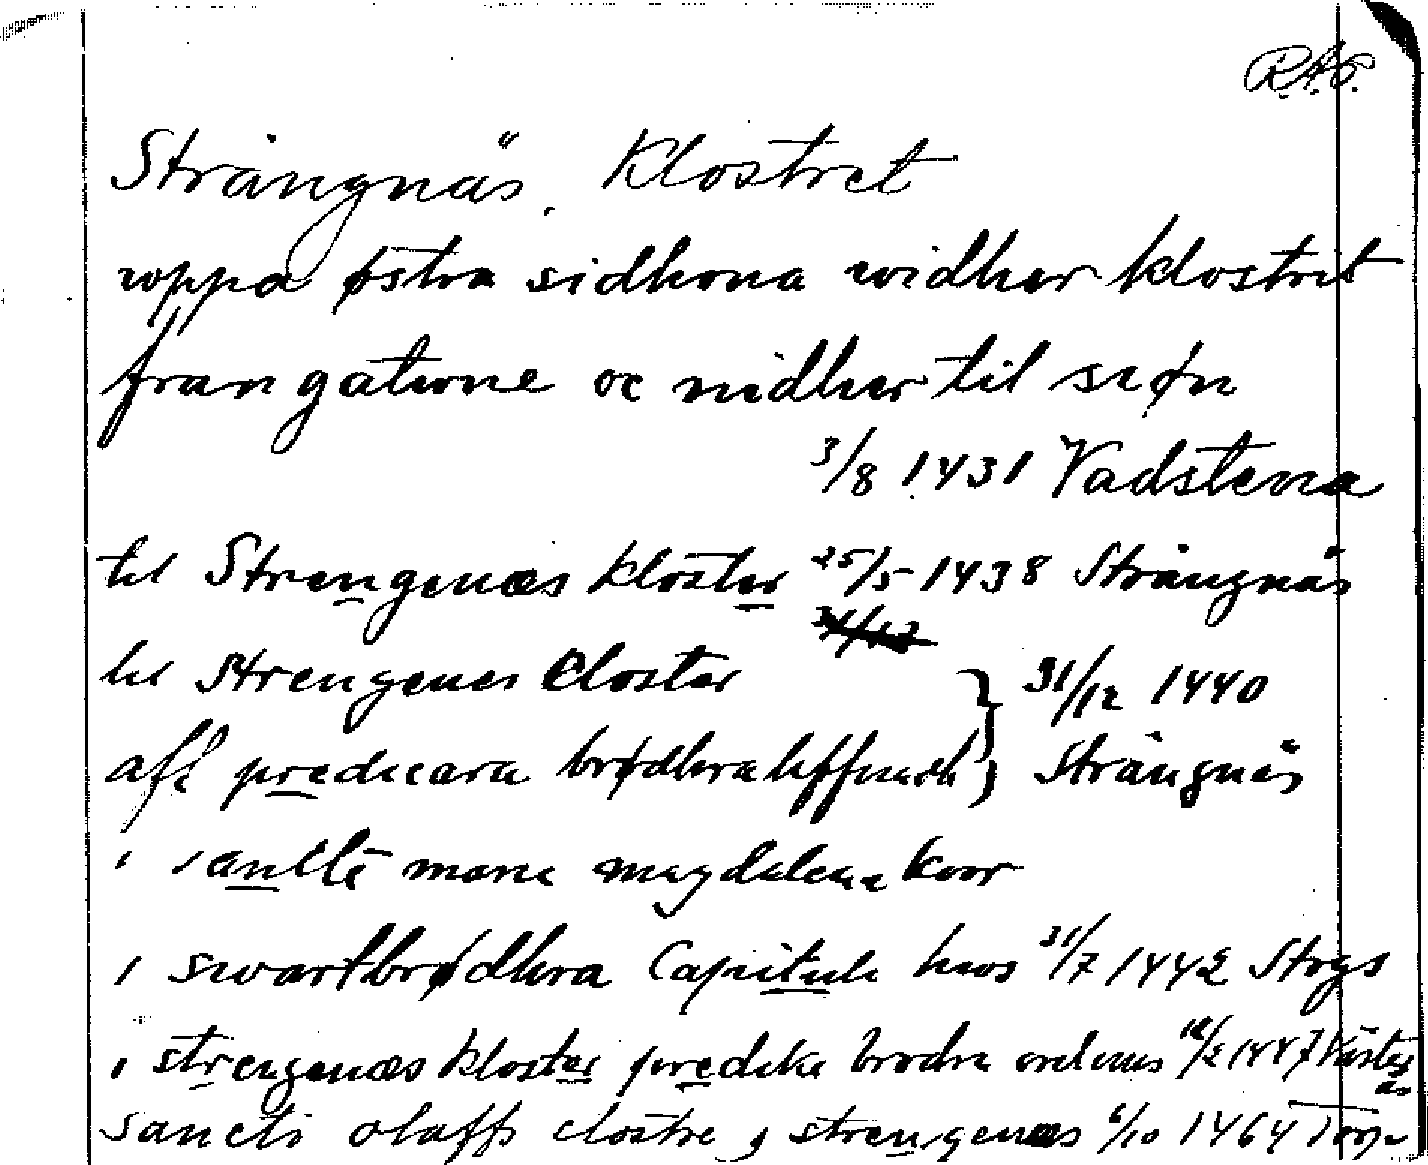 R.A.P.
Strängnäs. Klostret
uppa østra sidhona widher klostrit
fran gatwne oc nidher til siøn
3/8 1431 Vadstena
til Strengenæs kloster 25/5 1438 Strängnäs
til Strengenes Closter } 31/12 1440
aff predicara brødhra Strängnäs
i sancte marie magdalena koor
i swartbrødhra Capitule hws 31/7 1442 Strgs
i strengenæs kloster predike brødra ordens 1447 Västerås
sancti olaffs clostre i strengenæs 6/10 1464